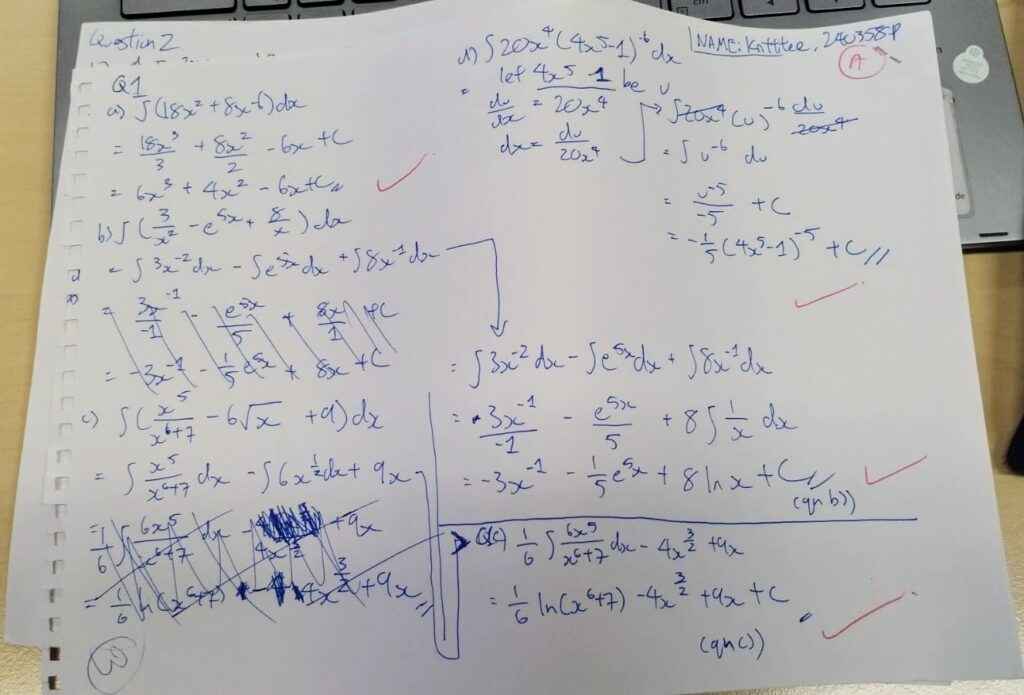 Question 2
Q1
a) ∫(18x² + 8x - 6)dx
= 18x³/3 + 8x²/2 - 6x + C
= 6x³ + 4x² - 6x + C //
b) ∫(3/x² - e^5x + 8/x) dx
= ∫3x^-2 dx - ∫e^5x dx + ∫8x^-1 dx
= 3x^-1/-1 - e^5x/5 + 8x/1 + C
= -3x^-1 - 1/5 e^5x + 8x + C
c) ∫(x^5/x^6+7 - 6√x + 9) dx
= ∫ x^5/x^6+7 dx - ∫6x^1/2 dx + 9x
= 1/6 ∫ 6x^5/x^6+7 dx - 4x^3/2 + 9x
= 1/6 ln(x^6+7) - 4x^3/2 + 9x //
NAME: 2403587P
A
d) ∫20x⁴(4x⁵-1)^-6 dx
= let 4x⁵ - 1 be u
du/dx = 20x⁴
dx = du/20x⁴
→ ∫20x⁴(u)^-6 du/20x⁴
= ∫u^-6 du
= u^-5/-5 + C
= -1/5 (4x⁵-1)^-5 + C //
= ∫3x^-2 dx - ∫e^5x dx + ∫8x^-1 dx
= 3x^-1/-1 - e^5x/5 + 8∫1/x dx
= -3x^-1 - 1/5 e^5x + 8 ln x + C //
(qn b))
Q1c) 1/6 ∫ 6x^5/x^6+7 dx - 4x^3/2 + 9x
= 1/6 ln(x^6+7) - 4x^3/2 + 9x + C
(qn c))
ctrl